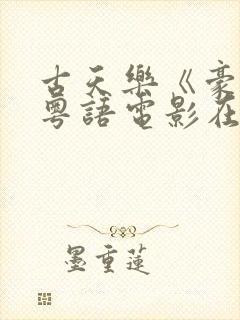 古天樂《豪
粵語電影在
墨重蓮